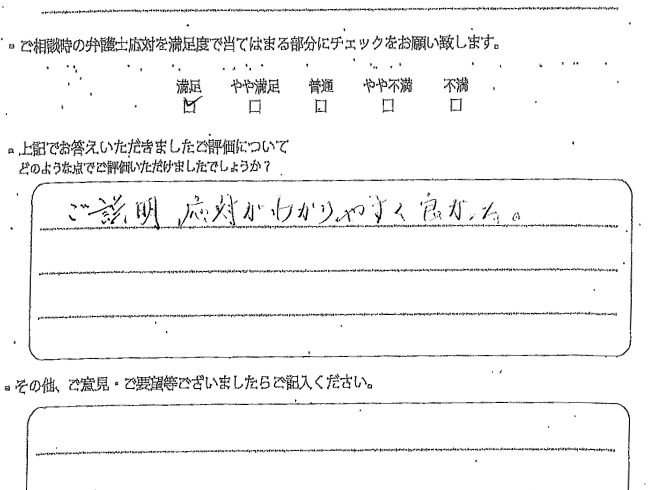 ご相談時の弁護士応対を満足度で当てはまる部分にチェックをお願い致します。
満足 やや満足 普通 やや不満 不満
上記でお答えいただきましたご評価について
どのような点でご評価いただけましたでしょうか?
ご説明、応対がわかりやすく良かった。
その他、ご意見・ご要望等ございましたらご記入ください。